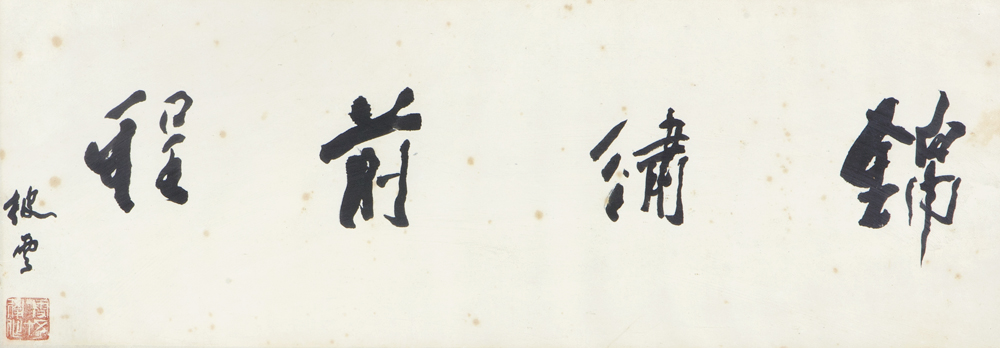 錦繡前程
披雲